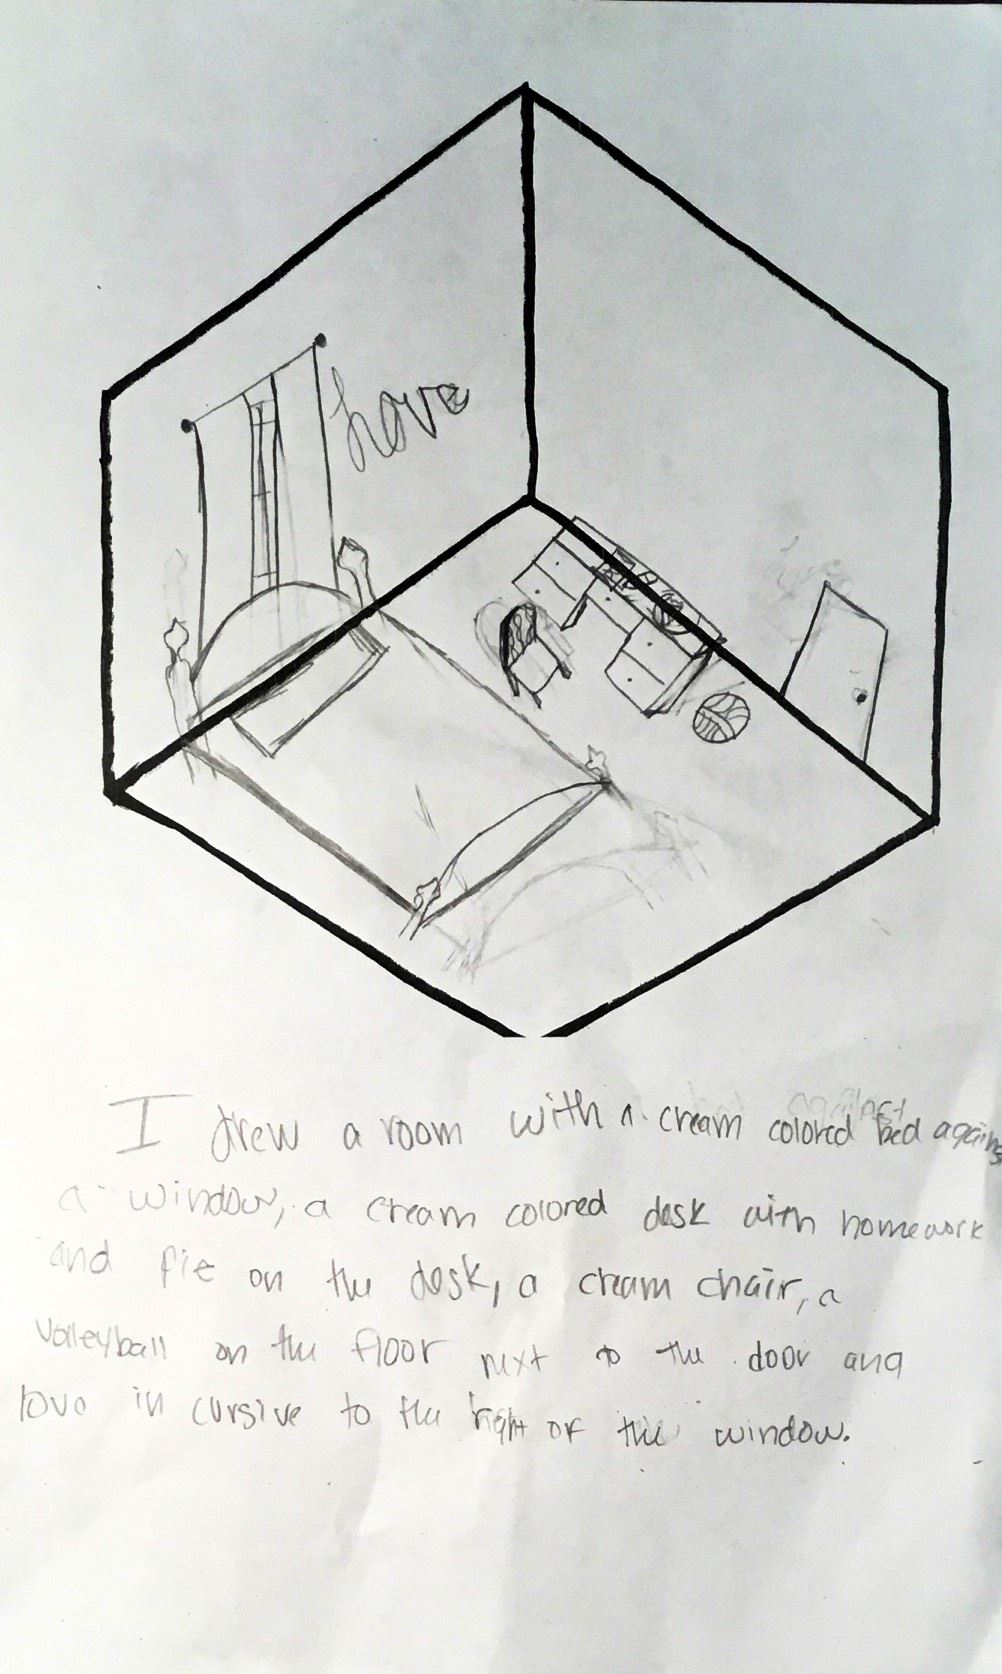 Love
I drew a room with a cream colored bed against
a window, a cream colored desk with homework
and pie on the desk, a cream chair, a
volleyball on the floor next to the door and
love in cursive to the right of the window.